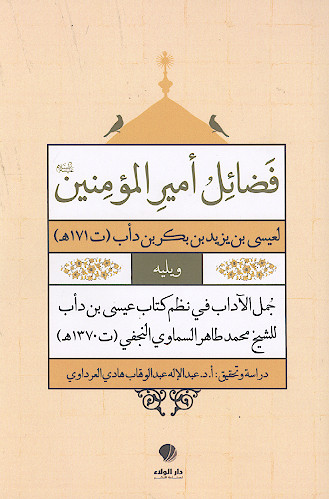 فَضائِلُ أميرِ المؤمِنين
لعيسى بن يزيد بن بكر بن دأب (ت ١٧١هـ)
ويليه
جُمل الآداب في نظم كتاب عيسى بن دأب
للشيخ محمد طاهر السماوي النجفي (ت ١٣٧٠هـ)
دراسة وتحقيق: أ.د. عبد الإله عبد الوهاب هادي العرداوي
دار الولاء